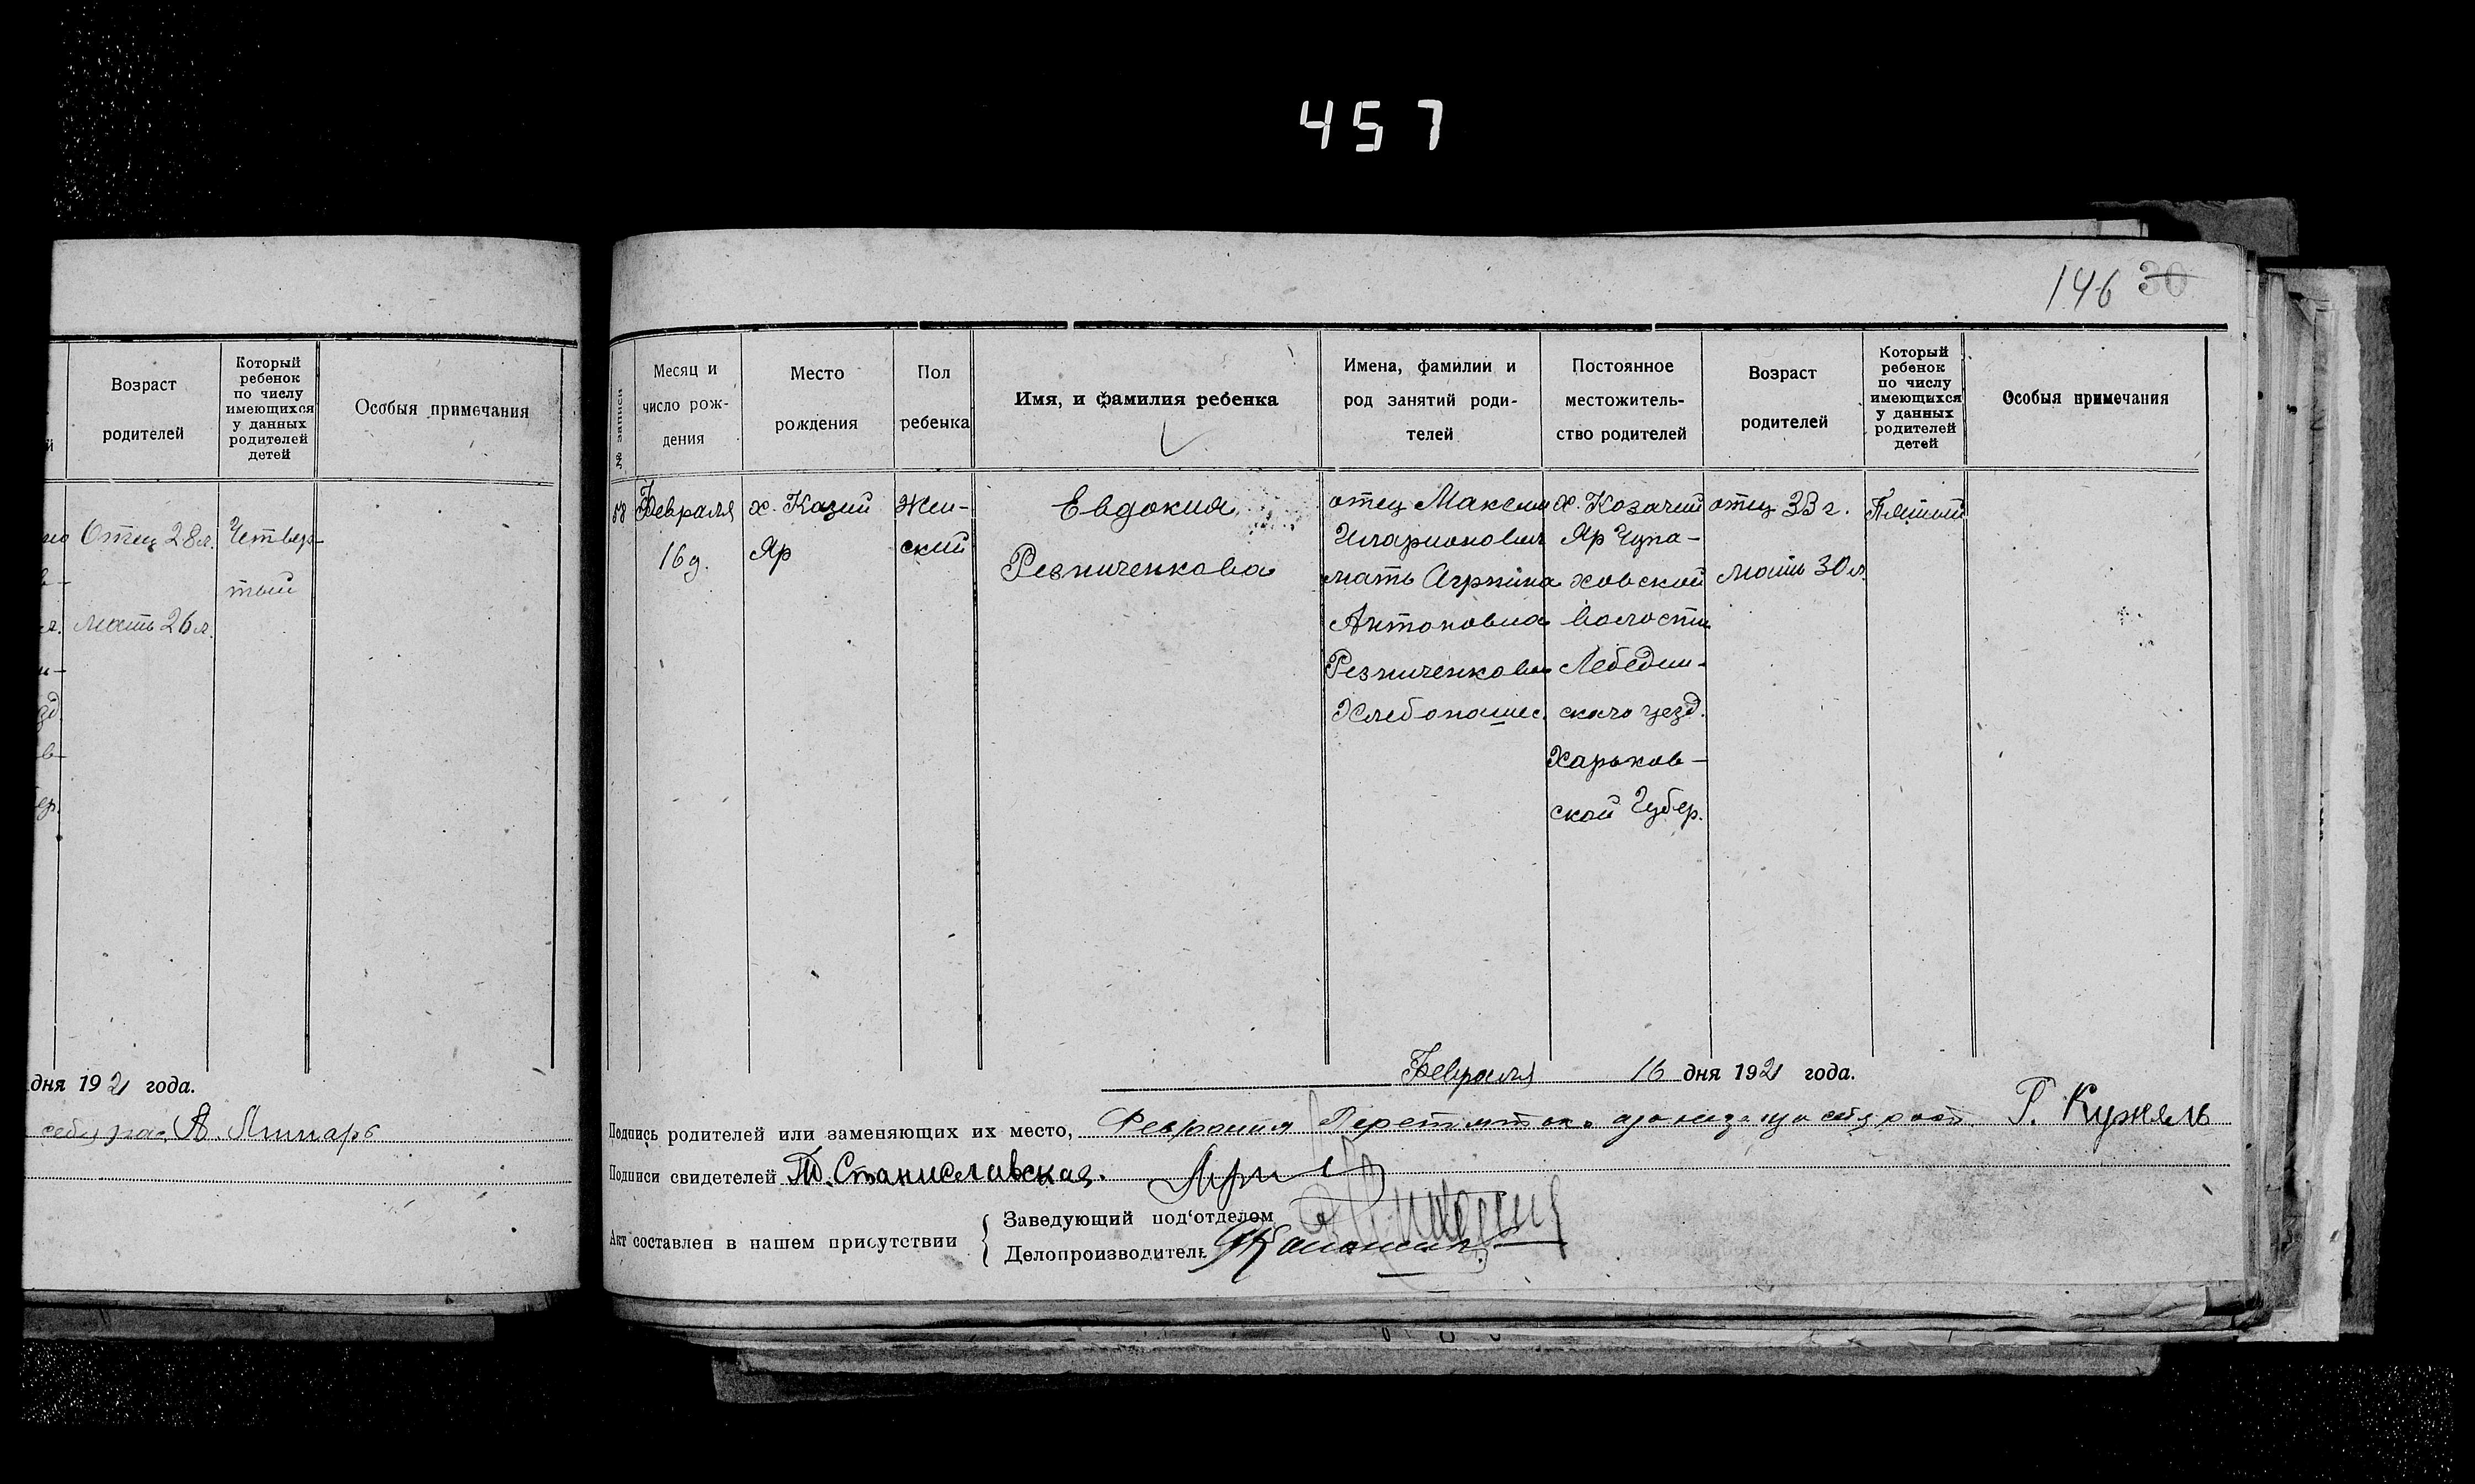 457
146 30
Возраст
родителей
Который
ребенок
по числу
имеющихся
у данных
родителей
детей
Особыя примечания
Отец 28 л.
Четвер-
тый
мать 26 л.
дня 1921 года.
А. Линарь
№ записи
Месяц и
число рож-
дения
Место
рождения
Пол
ребенка
Имя, и фамилия ребенка
Имена, фамилии и
род занятий роди-
телей
Постоянное
местожитель-
ство родителей
Возраст
родителей
Который
ребенок
по числу
имеющихся
у данных
родителей
детей
Особыя примечания
58
Февраля
16 д.
х. Казий
Яр
Жен-
ский
Евдокия
Резниченкова
отец Максим
Иларионович
мать Агрпина
Антоновна
Резниченковы
Хлебопашес.
х. Козачий
Яр Чупа-
ховской
волости
Лебедин-
скаго уезд.
Харьков-
ской Губер.
отец 33 г.
мать 30 л.
Пятый
Февраля 16 дня 1921 года.
Подпись родителей или заменяющих их место, Г. Кужель
Подписи свидетелей Т. Станиславская.
Акт составлен в нашем присутствии
Заведующий под'отделом
Делопроизводитель